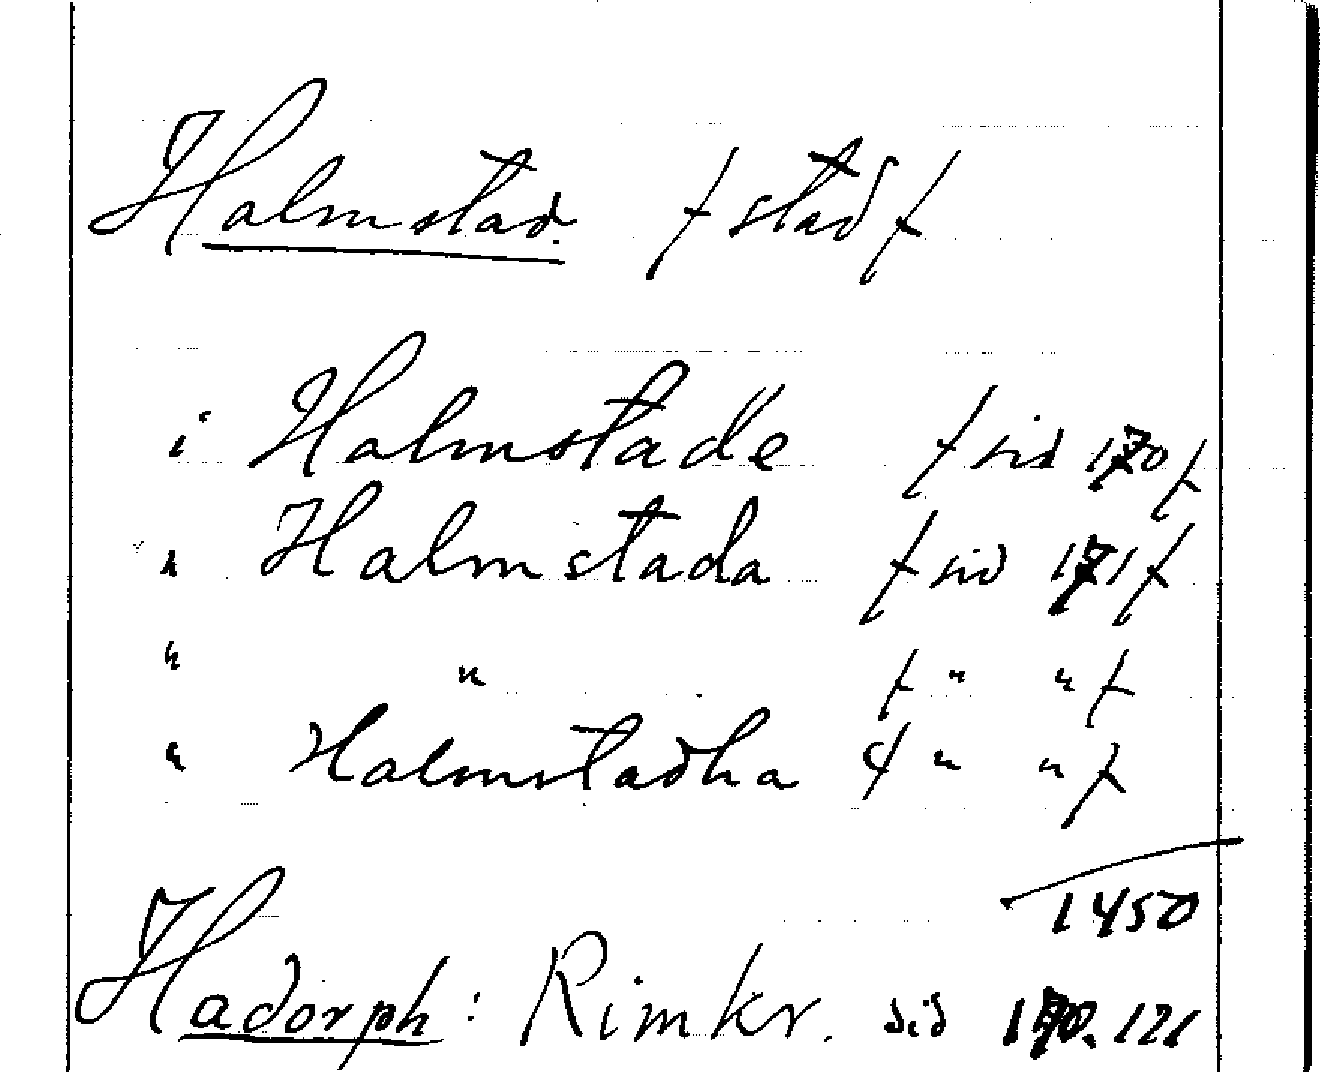 Halmstad. (stad)
i Halmstade (sid 120)
" Halmstada (sid 121)
" " (" ")
" Halmstadha (" ")
1450
Hadorph: Rimkr. sid 120. 121